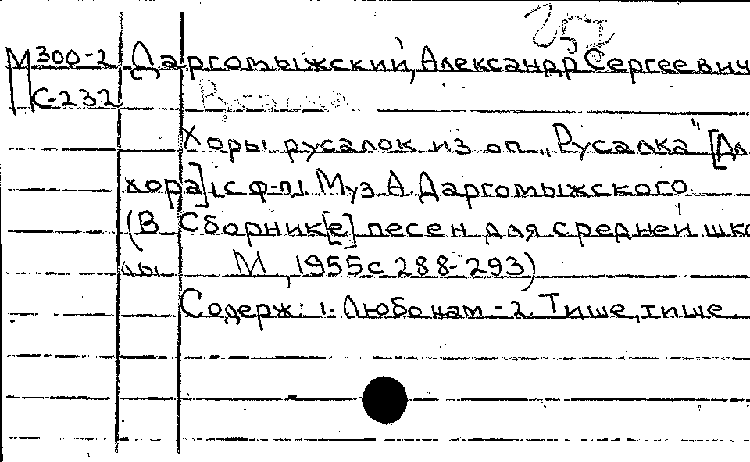 257
М 300-2 Даргомыжский, Александр Сергеевич
С-232 Русалка
Хоры русалок из оп. „Русалка" [Дл
хора] с ф-п. Муз А. Даргомыжского
(В Сборник[е] песен для средней шко
лы М., 1955 с 288-293)
Содерж: 1. Любо нам - 2. Тише, тише